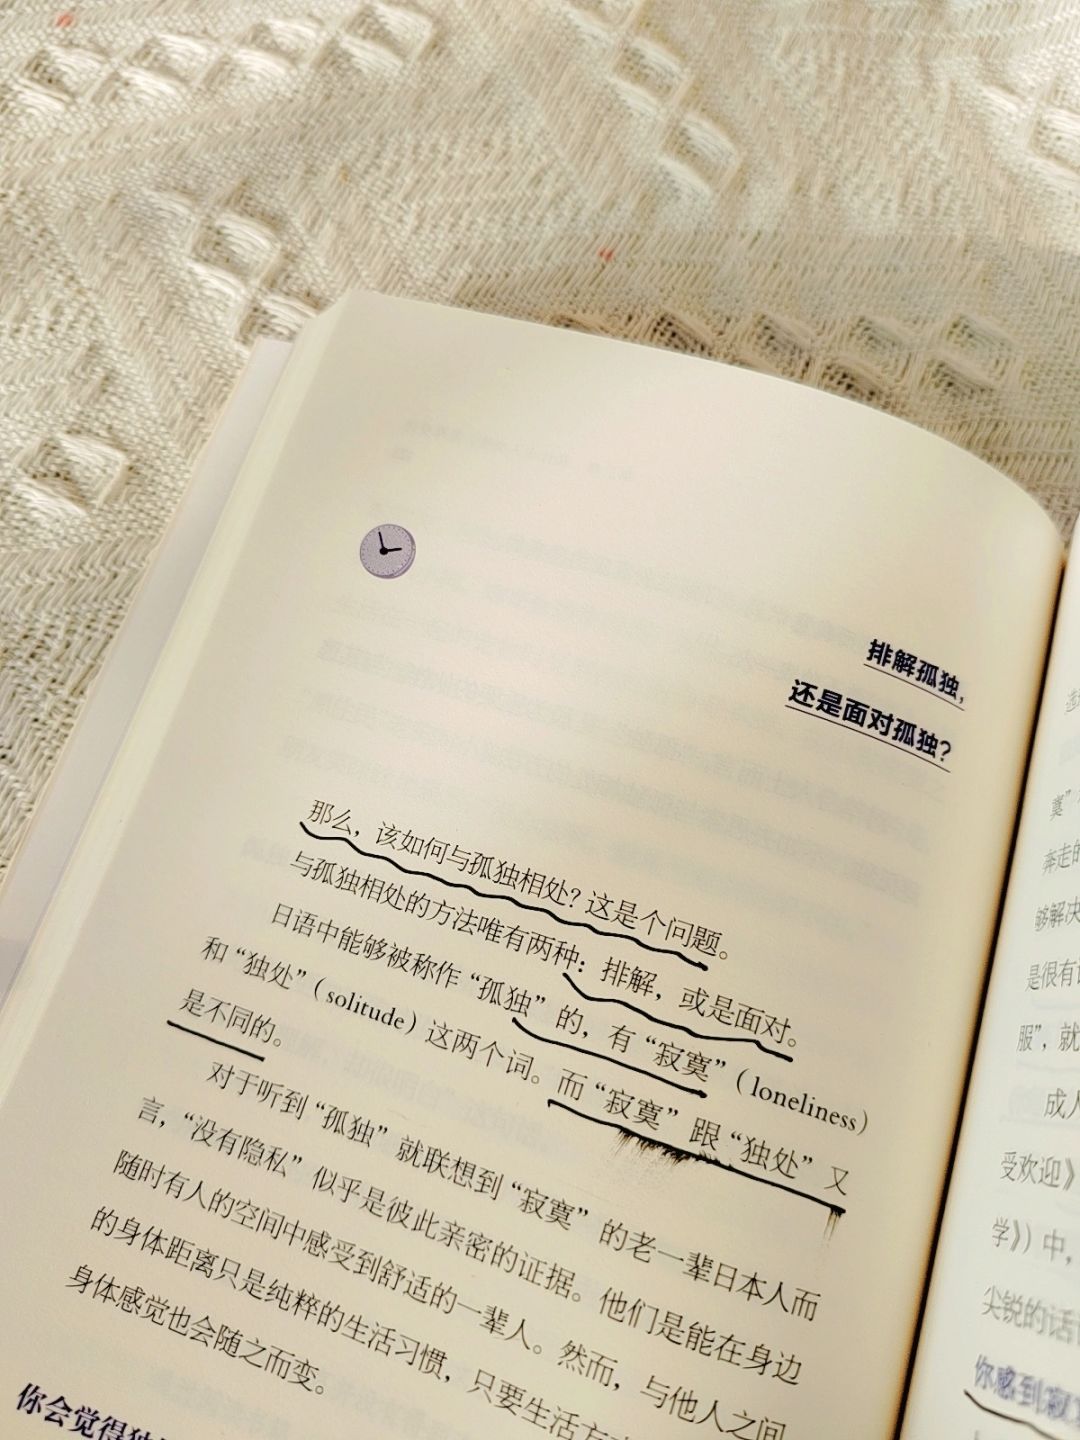 排解孤独，
还是面对孤独？
那么，该如何与孤独相处？这是个问题。
与孤独相处的方法唯有两种：排解，或是面对。
日语中能够被称作“孤独”的，有“寂寞”（loneliness）
和“独处”（solitude）这两个词。而“寂寞”跟“独处”又
是不同的。
对于听到“孤独”就联想到“寂寞”的老一辈日本人而
言，“没有隐私”似乎是彼此亲密的证据。他们是能在身边
随时有人的空间中感受到舒适的一辈人。然而，与他人之间
的身体距离只是纯粹的生活习惯，只要生活方
身体感觉也会随之而变。
你会觉得独
寞”
奔走的
够解决
是很有
服”，就
成人
受欢迎》
学》）中，
尖锐的话
你感到寂